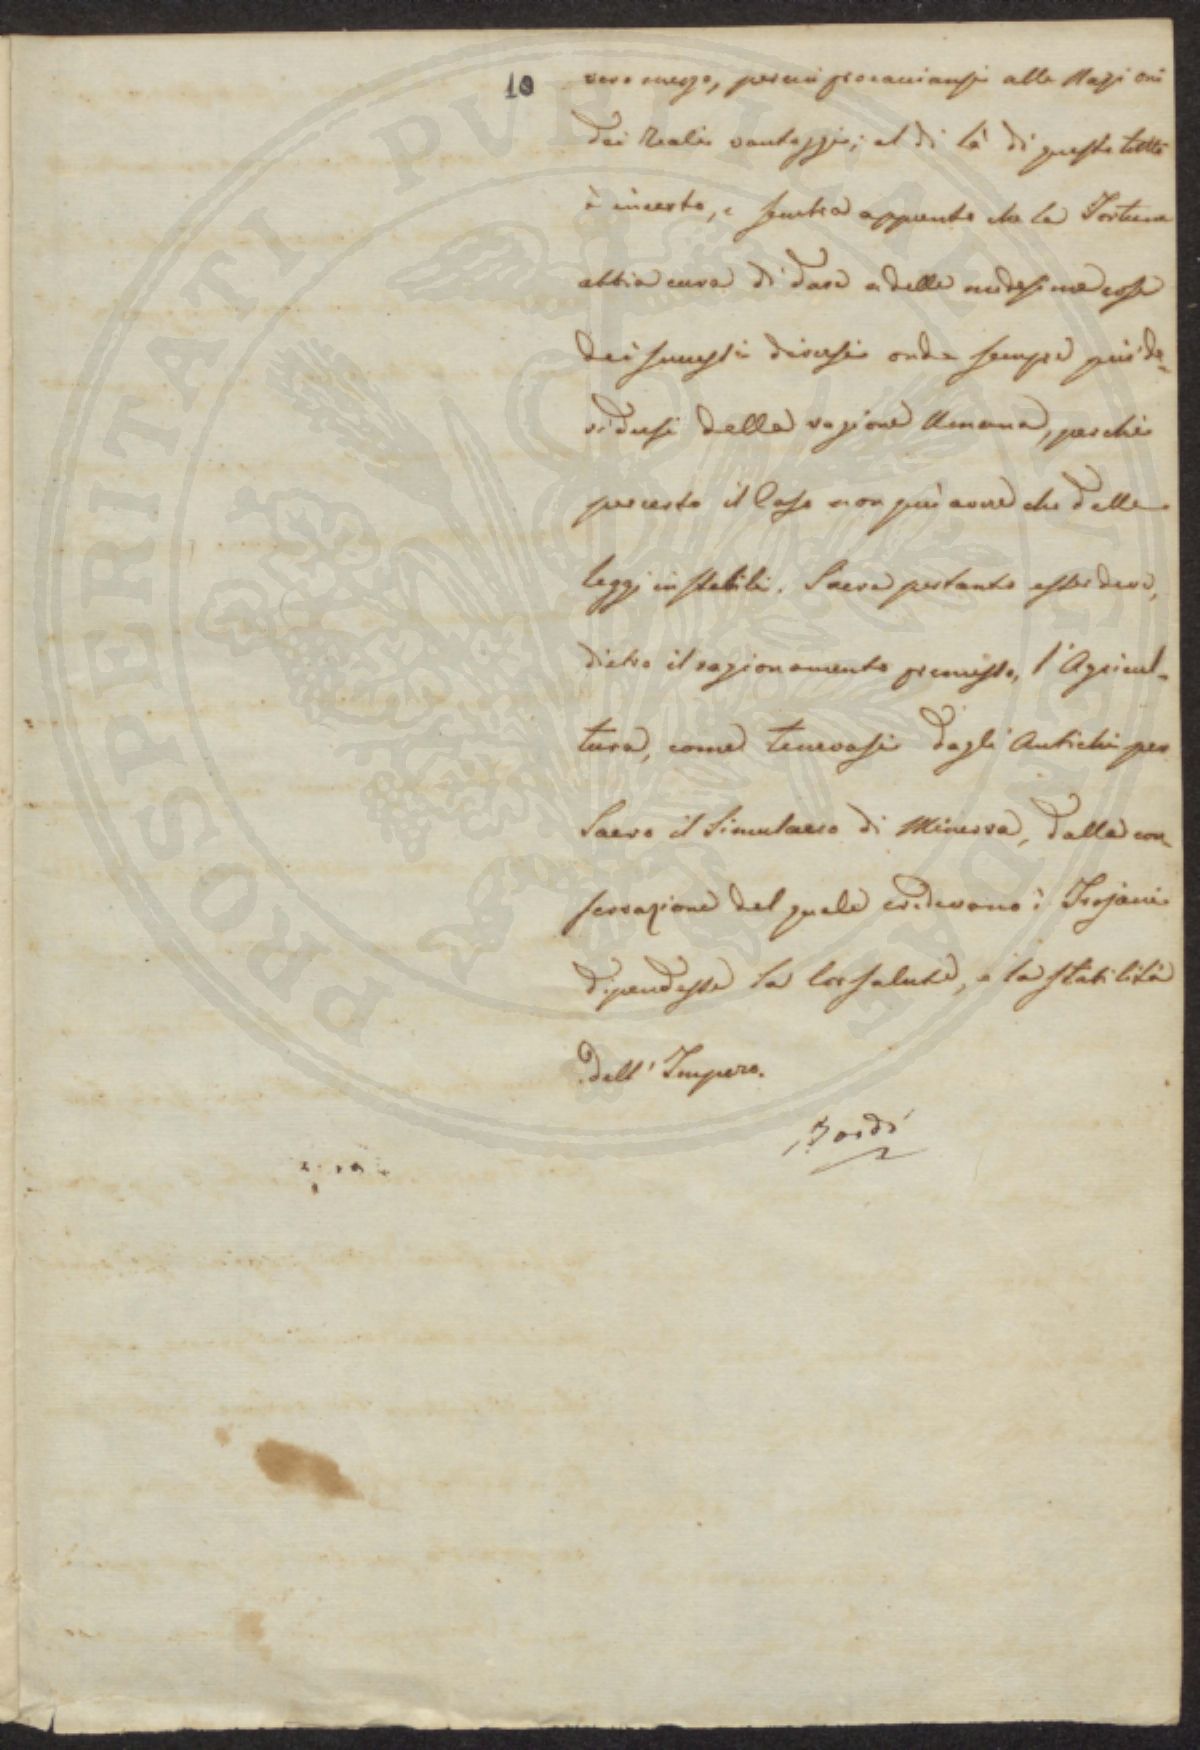 10
vero mezzo, per cui procacciansi alle Nazioni
dei reali vantaggi; al di là di questo tutto
è incerto, e sembra appunto che la Fortuna
abbia cura di dare a delle medesime cose
dei successi diversi onde sempre più de-
ridersi della ragione Umana, perchè
per certo il Caso non può avere che delle
leggi instabili. Sacra pertanto esser deve,
dietro il ragionamento premesso, l'Agricul-
tura, come tenevasi dagli Antichi per
Sacro il Simulacro di Minerva, dalla con-
servazione del quale credevano i Trojani
dipendesse la lor salute, e la stabilità
dell'Impero.
PROSPERITATI PVBLICAE AVGENDAE